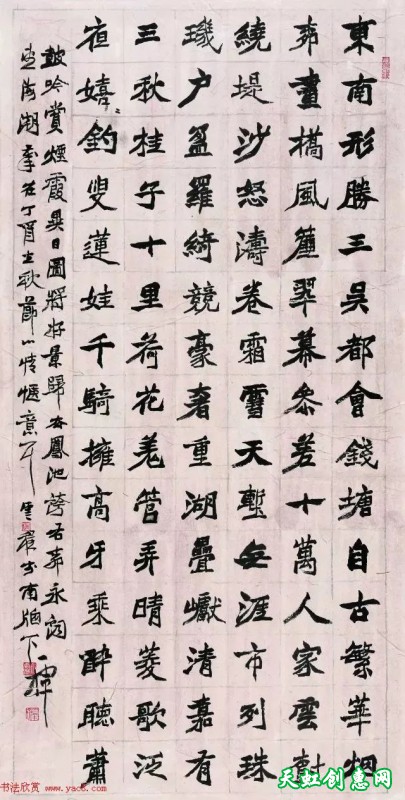 東南形勝三吳都會錢塘自古繁華烟
畫橋風簾翠幕參差十萬人家雲樹
繞堤沙怒濤卷霜雪天塹無涯市列珠
璣户盈羅綺競豪奢重湖疊巘清嘉有
三秋桂子十里荷花羌管弄晴菱歌泛
夜嬉〻釣叟蓮娃千騎擁高牙乘醉聽蕭
鼓吟賞煙霞異日圖將好景歸去鳳池誇右永詞
望海潮在丁酉情愜意書南窗下
书法欣赏
www.yac8.com
天虹创惠网